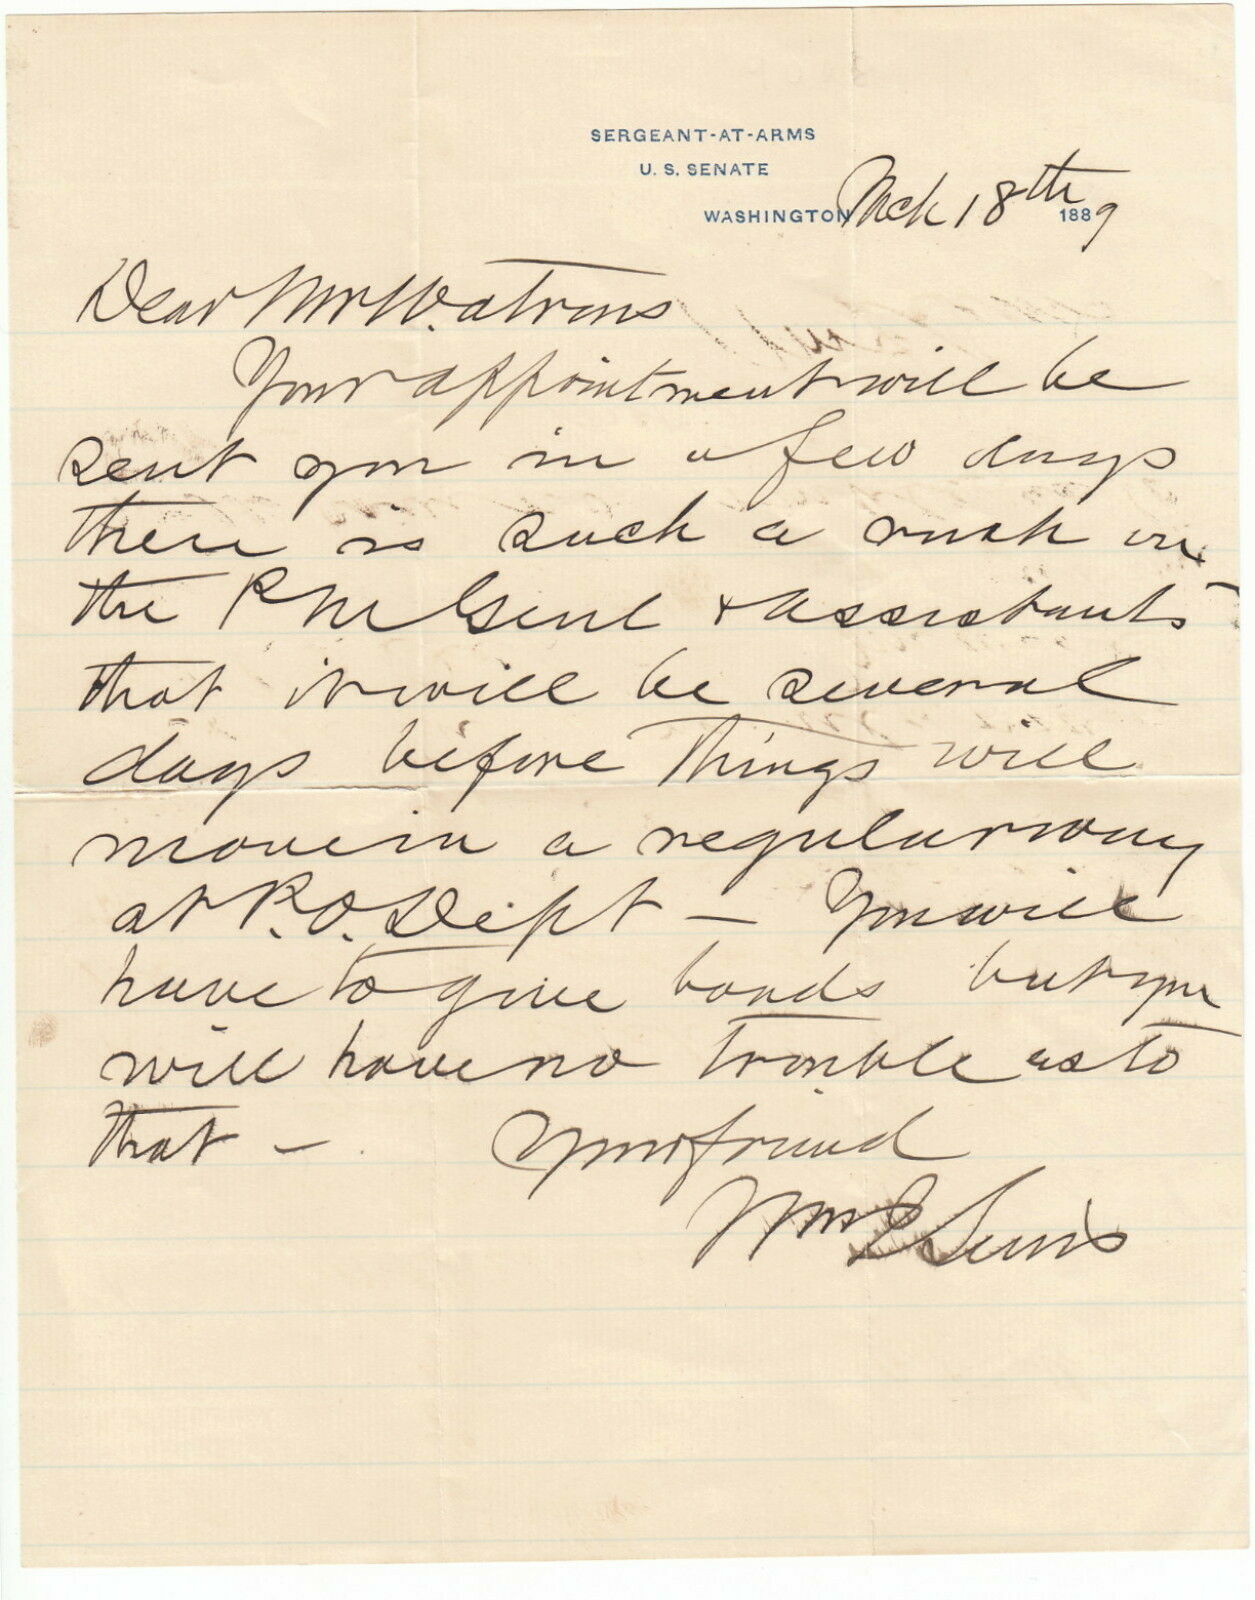 SERGEANT-AT-ARMS
U. S. SENATE
WASHINGTON Mch 18th 1889
Dear Mr Watrous
Your appointment will be
sent you in a few days
there is such a rush on
the P M Genl & assistants
that it will be several
days before things will
move in a regular way
at P.O. Dept — You will
have to give bonds but you
will have no trouble as to
that — Your friend
Wm Lewis